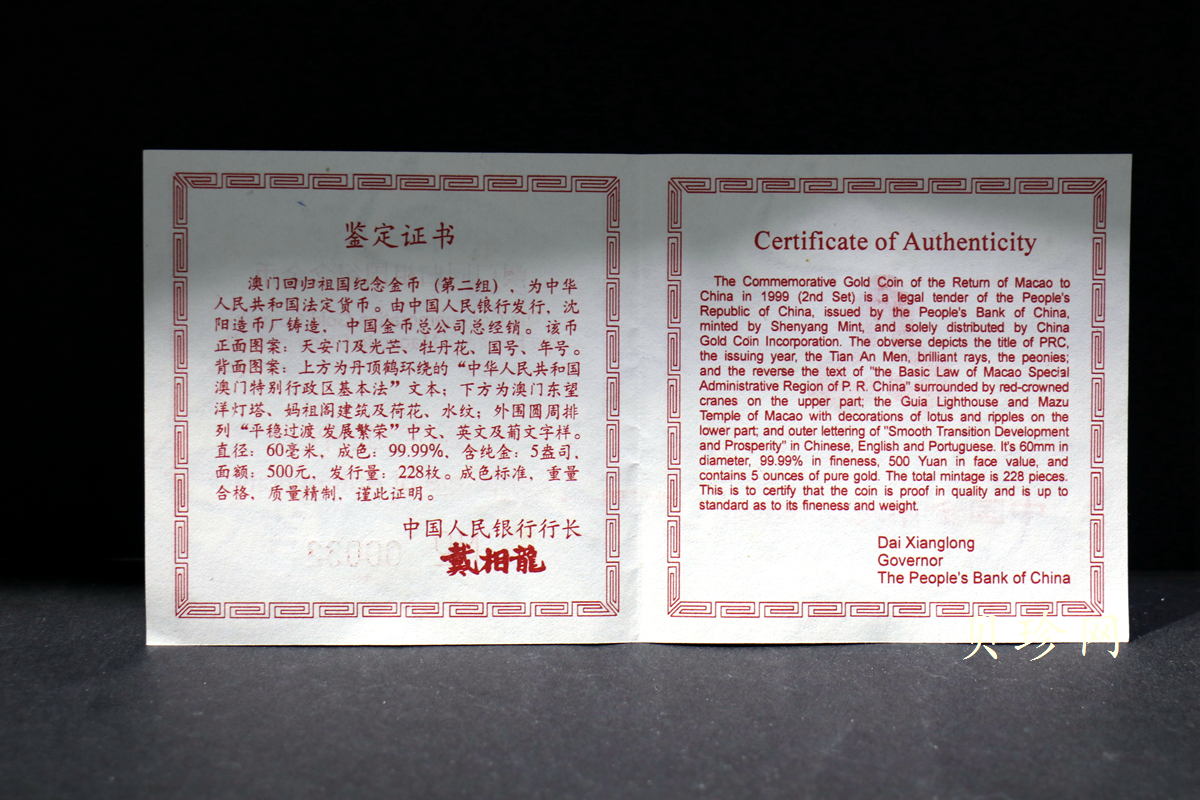 鉴定证书
澳门回归祖国纪念金币（第二组）、为中华
人民共和国法定货币。由中国人民银行发行，沈
阳造币厂铸造， 中国金币总公司总经销。该币
正面图案：天安门及光芒、牡丹花、国号、年号。
背面图案：上方为丹顶鹤环绕的“中华人民共和国
澳门特别行政区基本法”文本；下方为澳门东望
洋灯塔、妈祖阁建筑及荷花、水纹；外国圆周排
列“平稳过渡 发展繁荣”中文、英文及葡文字样。
直径：60毫米，成色：99.99%，含纯金：5盎司，
面额：500元，发行量：228枚。成色标准，重量
合格，质量精制，谨此证明。
中国人民银行行长
戴相龍
Certificate of Authenticity
The Commemorative Gold Coin of the Return of Macao to
China in 1999 (2nd Set) is a legal tender of the People's
Republic of China, issued by the People's Bank of China,
minted by Shenyang Mint, and solely distributed by China
Gold Coin Incorporation. The obverse depicts the title of PRC,
the issuing year, the Tian An Men, brilliant rays, the peonies;
and the reverse the text of "the Basic Law of Macao Special
Administrative Region of P. R. China" surrounded by red-crowned
cranes on the upper part; the Guia Lighthouse and Mazu
Temple of Macao with decorations of lotus and ripples on the
lower part; and outer lettering of "Smooth Transition Development
and Prosperity" in Chinese, English and Portuguese. It's 60mm in
diameter, 99.99% in fineness, 500 Yuan in face value, and
contains 5 ounces of pure gold. The total mintage is 228 pieces.
This is to certify that the coin is proof in quality and is up to
standard as to its fineness and weight.
Dai Xianglong
Governor
The People's Bank of China
贝珍网